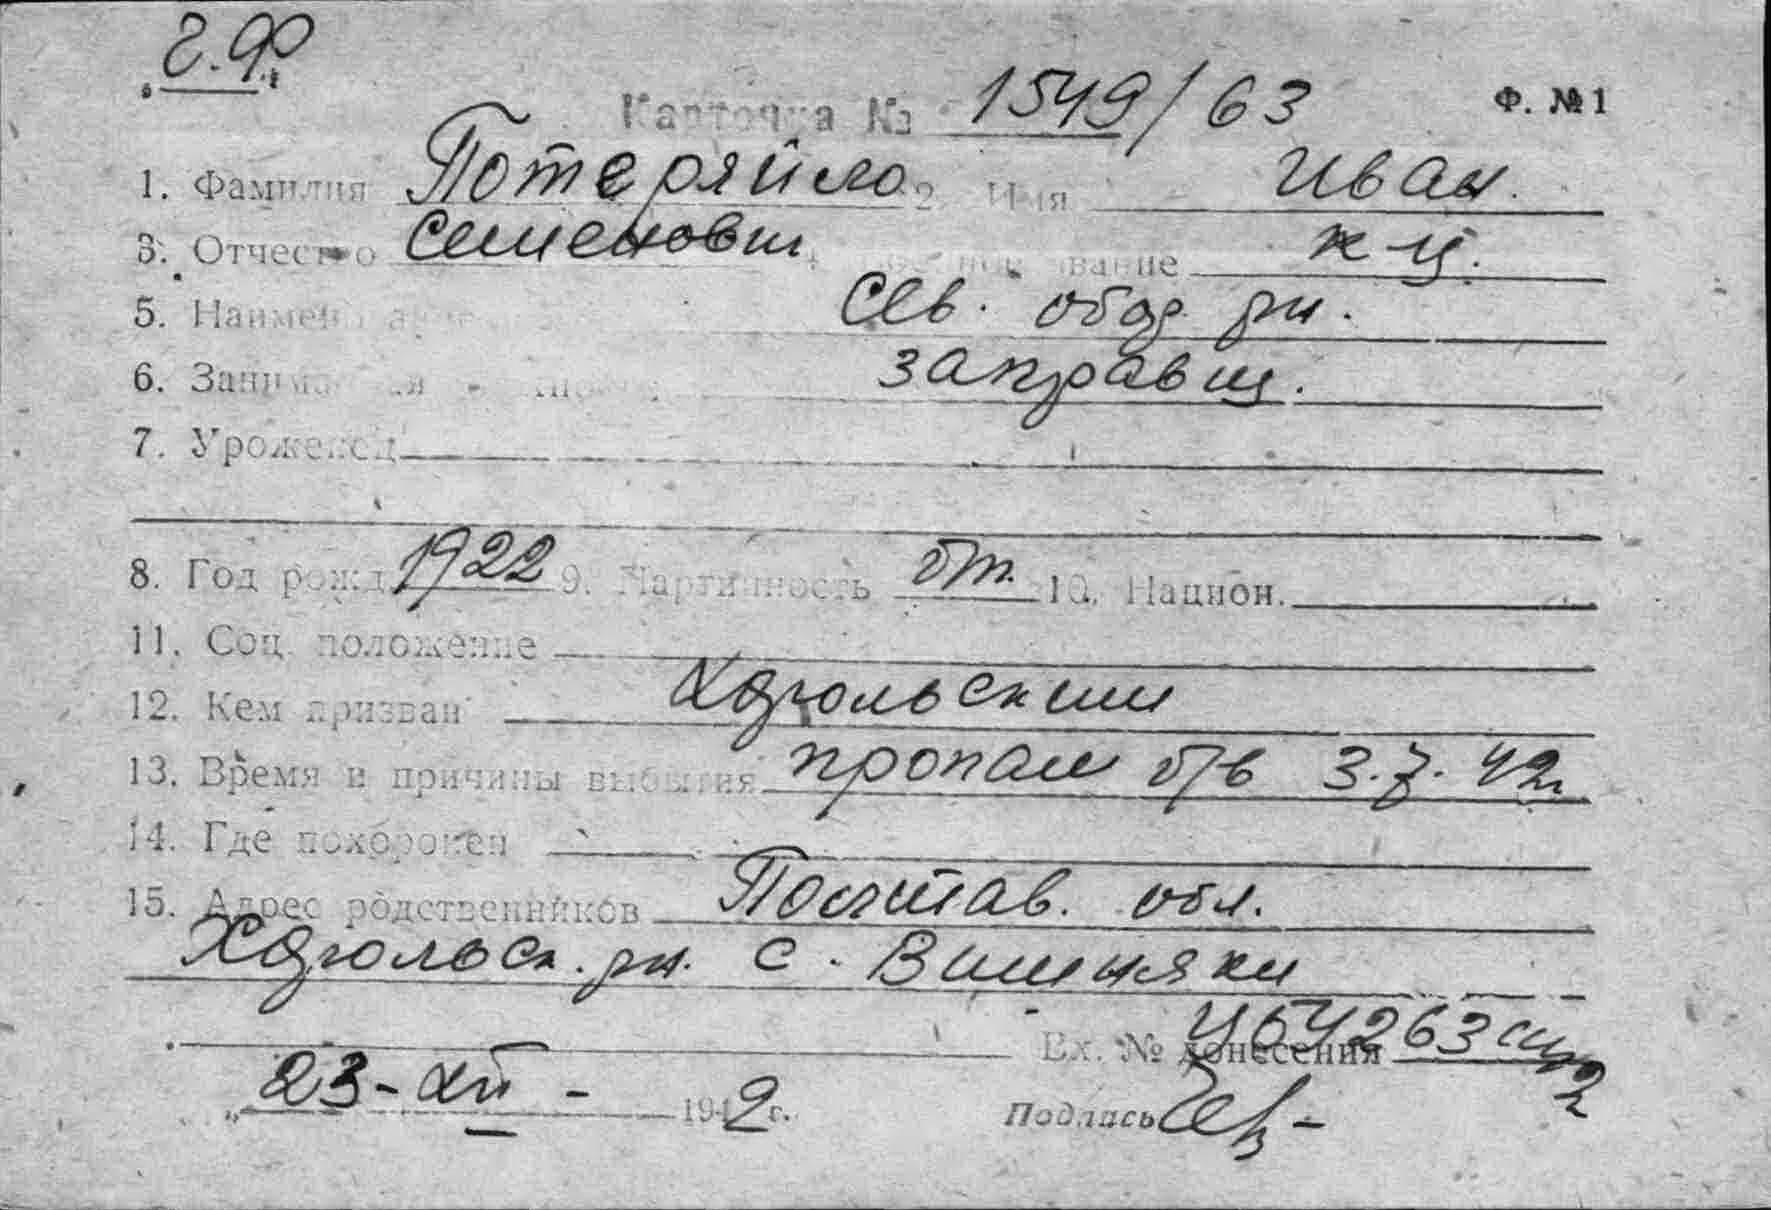 Ч.Ф.
Карточка № 1549/63 Ф. №1
1. Фамилия Потеряйло 2. Имя Иван.
3. Отчество Семенович 4. Военное звание к-ц.
5. Сев. обор. рн.
6. заправщ.
7. Уроженец
8. Год рожд. 1922 9. Партийность б/п. 10. Национ.
11. Соц. положение
12. Кем призван Хорольским
13. Время и причины выбытия пропал б/в 3.7.42г
14. Где похоронен
15. Адрес родственников Полтав. обл.
Хорольск. рн. с. Вишняки
Вх. № донесения
23-XII- 1942 г. Подпись